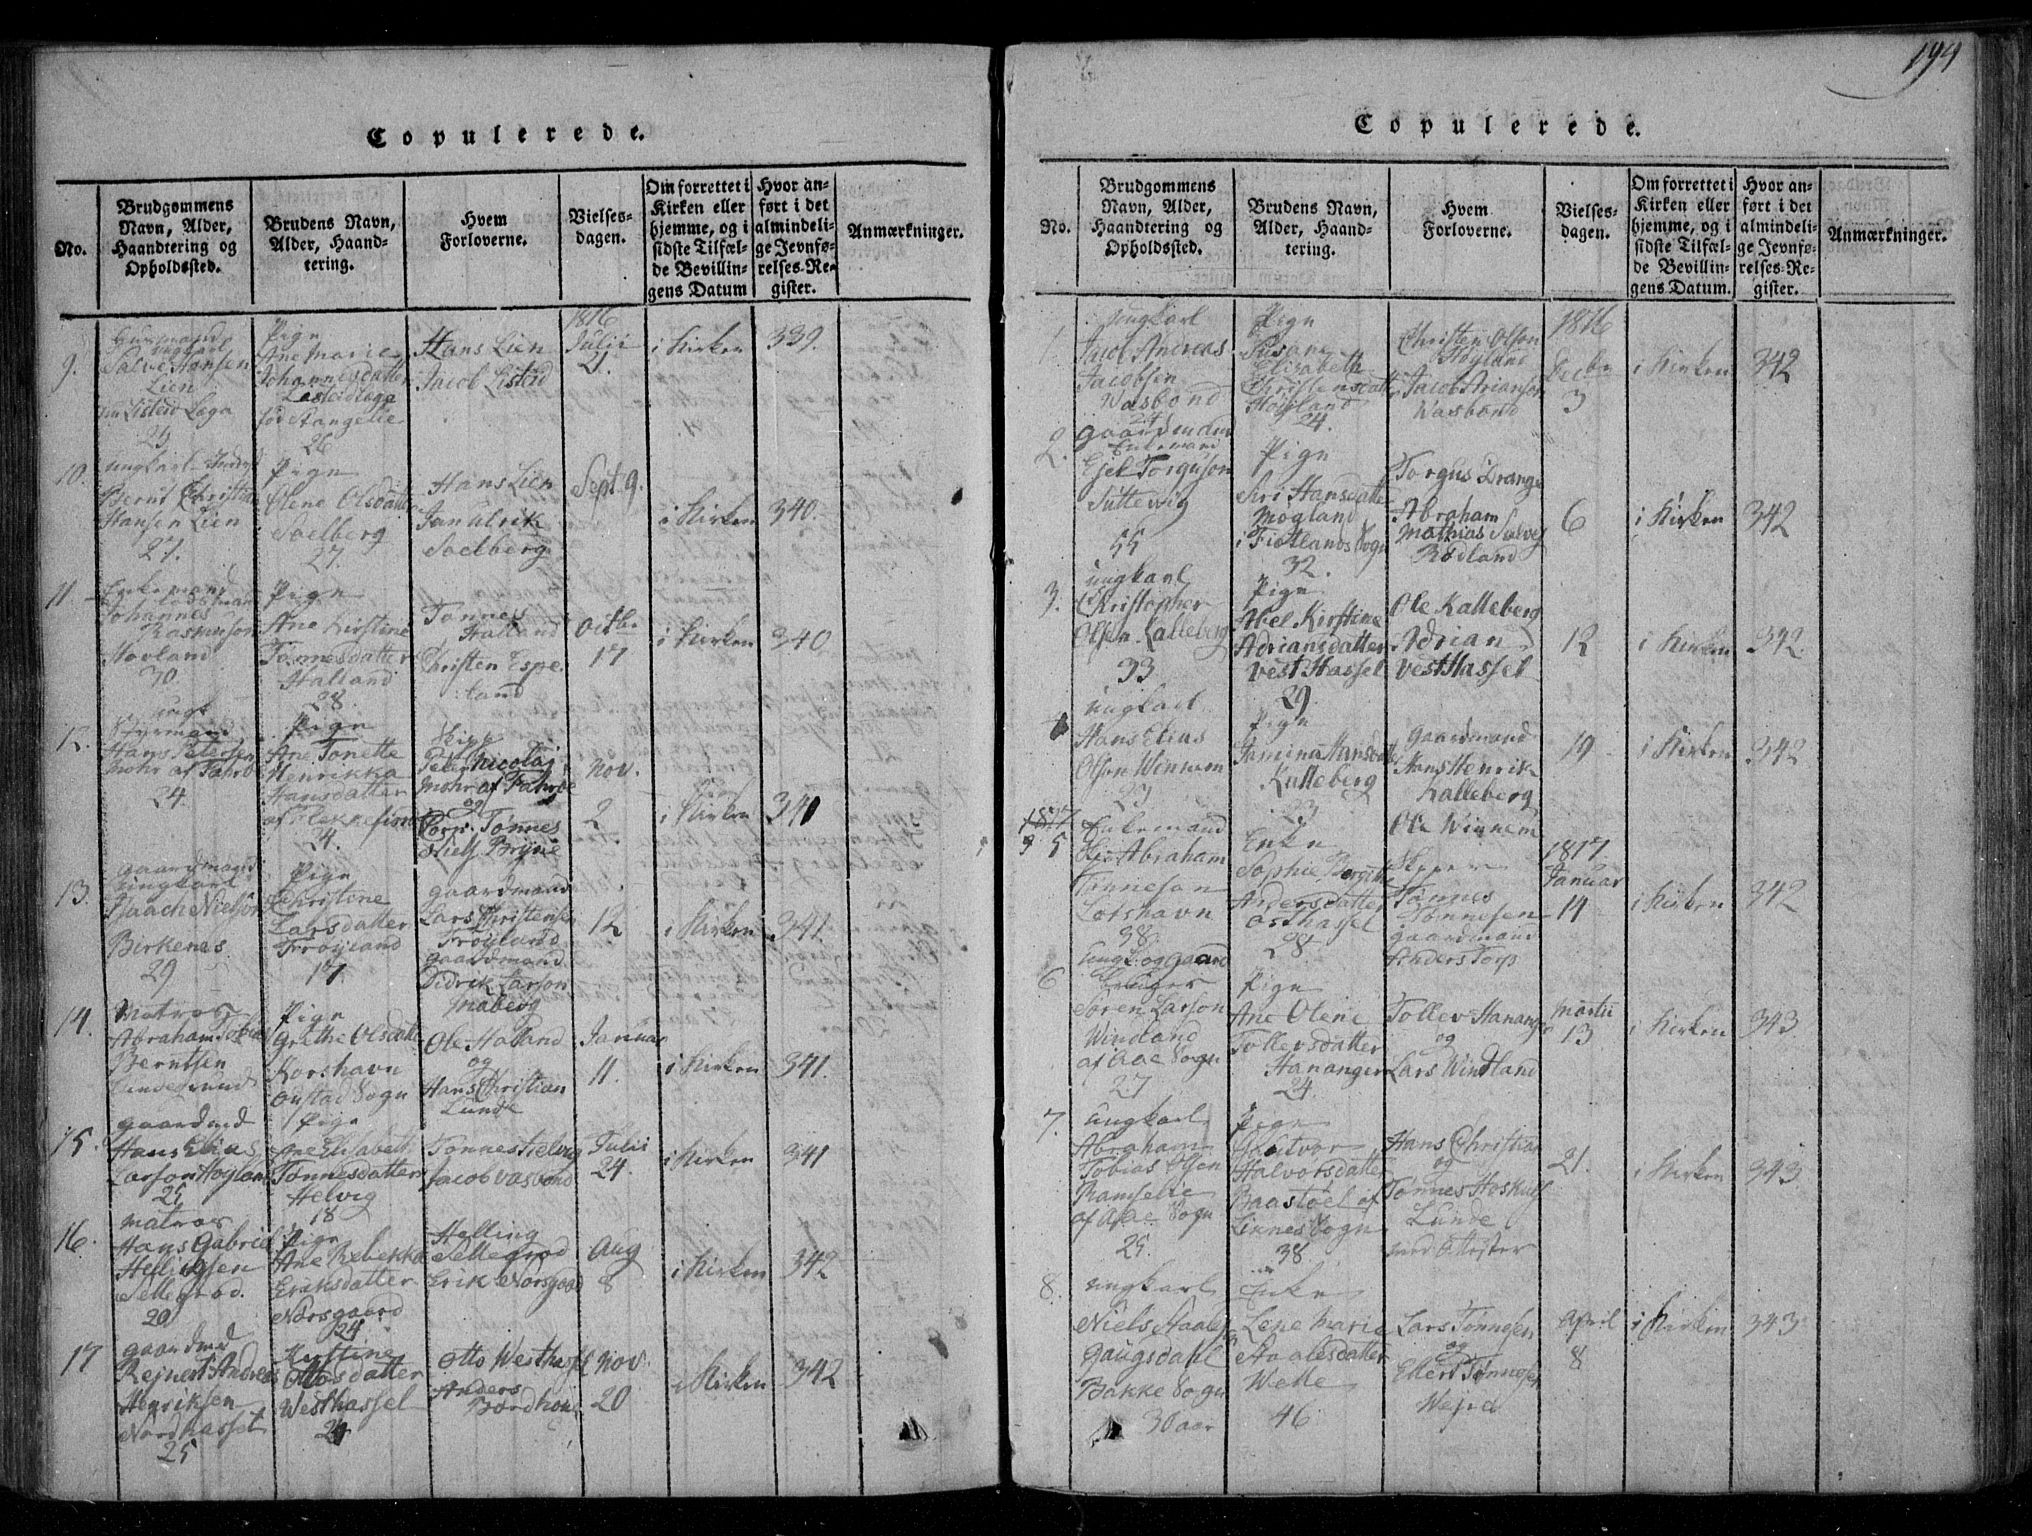 194
Copulerede.
No.
Brudgommens
Navn, Alder,
Haandtering og
Opholdssted.
Brudens Navn,
Alder, Haand-
tering.
Hvem
Forloverne.
Vielses-
dagen.
Om forrettet i
Kirken eller
hjemme, og i
sidste Tilfæl-
de Bevillin-
gens Datum
Hvor an-
ført i det
almindeli-
ge Jevnfø-
relses-Re-
gister.
Anmærkninger.
9.
Huusmand
ungkarl
Salve Hansen
Lien
25
Pige
Ane Marie
Johannesdatter
fød Stangelie
26
Hans Lien
Jacob Listeid
1816
Julii
21.
i Kirken
339.
10.
ungkarl
Bernt Christian
Hansen Lien
27.
Pige
Olene Olsdatter
Saelberg
27.
Hans Lien
Jan Ulrik
Saelberg
Sept. 9.
i Kirken
340.
11
Enkemand
Johannes
Rasmuson
Hovland
30.
Pige
Ane Kirstine
Tønnesdatter
Halland
28.
Tønnes
Halland
Christen Espe-
land
Octbr
17
i Kirken
340
12.
ungk
Styrmand
Hans Petersen
Mohr af Fahrøe
24.
Pige
Ane Tonette
Henrikka
Hansdatter
24.
Skipp
Peter Nicolai
Mohr af Fahrøe
og
Tønnes
Niels Bryne
Nov.
2
i Kirken
341
13.
gaardmand
ungkarl
Isaach Nielsøn
Birkenes
29
Pige
Christine
Larsdatter
Frøyland
17.
gaardmand
Lars Christensen
Frøyland
gaardmand
Didrik Larson
Maberg
12
i Kirken
341.
14.
Matros
Abraham Tobias
Berntsen
Pige
Grethe Olsdatter
Korshavn
Oustad Sogn
Ole Haland
og
Hans Christian
Lunde
Januar
11.
i Kirken
341.
15.
gaardmd
Hans Elias
Larson Høyland
25
Pige
Ane Elisabeth
Tønnesdatter
Helvig
18
Tønnes Helvig
Jacob Vasbond
Julii
24.
i Kirken
341
16.
matros
Hans Gabriel
Hellingsen
Sellegrod.
20
Pige
Ane Rebekka
Eriksdatter
Norsgaard
24
Helling
Sellegrod
Erik Norsgaard
Aug
8
i Kirken
342
17
gaardmd
Reinert Andreas
Henriksen
Nordhassel
25
Kirstine
Ottosdatter
Westhassel
24
Otto Westhassel
Anders
Bordhoug
Nov.
20
i Kirken
342
Copulerede.
No.
Brudgommens
Navn, Alder,
Haandtering og
Opholdssted.
Brudens Navn,
Alder, Haand-
tering.
Hvem
Forloverne.
Vielses-
dagen.
Om forrettet i
Kirken eller
hjemme, og i
sidste Tilfæl-
de Bevillin-
gens Datum.
Hvor an-
ført i det
almindeli-
ge Jevnfø-
relses-Re-
gister.
Anmærkninger.
1.
ungkarl
Jacob Andreas
Jacobsen
Wasbond
24
Pige
Susane
Elisabeth
Christensdatter
Høyland
24.
Christen Olson
Høyland
Jacob Arianson
Wasbond
1816
Decbr
3
i Kirken
342
2.
gaardmand
Enkemand
Ejel Torguson
Suttevig
55
Pige
Siri Hansdatter
Møgland
i Fiotlands Sogn
32.
Torgus Drange
Abraham
Mathias Salves
Rødland
6
i Kirken
342
3.
ungkarl
Christopher
Olsen Kalleberg
33
Pige
Abel Kirstine
Adriansdatter
Vest Hassel
29.
Ole Kalleberg
Adrian
Vest Hassel
12
i Kirken
342.
ungkarl
Hans Elias
Olson Winnem
23
Pige
Jamina Hansdatter
Kalleberg
23
gaardmand
Hans Henrik
Kalleberg
Ole Winnem
19
i Kirken
342
1817
5
Enkemand
Abraham
Tønneson
Lotshavn
38.
Enke
Sophie Bergitte
Andersdatter
Osthassel
28.
Skipper
Tønnes
Tønnesen
gaardmand
Anders Torp
1817
Januar
14
i Kirken
342
6
ungk. og gaard
bruger
Søren Larson
Windland
af Aae Sogn
27
Pige
Ane Olene
Tollevsdatter
Hananger
24.
Tollev Hananger
og
Lars Windland
Martii
13
i Kirken
343
7.
ungkarl
Abraham
Tobias Olsen
Ramselie
af Aae Sogn
25.
Pige
Halvorsdatter
Baastøel af
Liknes Sogn
38
Hans Christian
og
Tønnes Hoskuls
Lunde
med Attester
21.
i Kirken
343
8.
ungkarl
Niels Staales
Gaugsdahl
Bakke Sogn
30 aar
Enke
Lene Marie
Staalesdatter
Welle
46
Lars Tønnesen
og
Ellert Tønnesen
Wejra
April
8
i Kirken
343